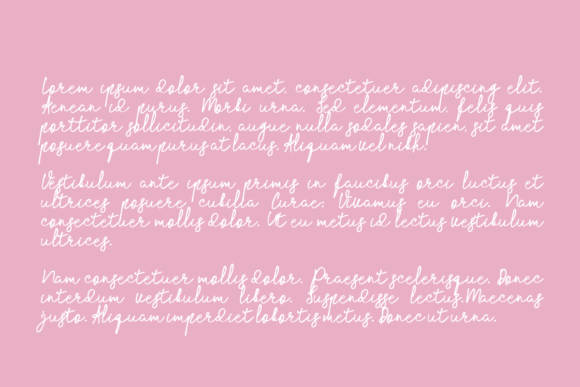 Lorem ipsum dolor sit amet, consectetuer adipiscing elit.
Aenean id purus. Morbi urna. Sed elementum, felis quis
porttitor sollicitudin, augue nulla sodales sapien, sit amet
posuere quam purus at lacus. Aliquam vel nibh.
Vestibulum ante ipsum primis in faucibus orci luctus et
ultrices posuere cubilia Curae; Vivamus eu orci. Nam
consectetuer mollis dolor. Ut eu metus id lectus vestibulum
ultrices.
Nam consectetuer mollis dolor. Praesent scelerisque. Donec
interdum vestibulum libero. Suspendisse lectus.Maecenas
justo. Aliquam imperdiet lobortis metus. Donec ut urna.